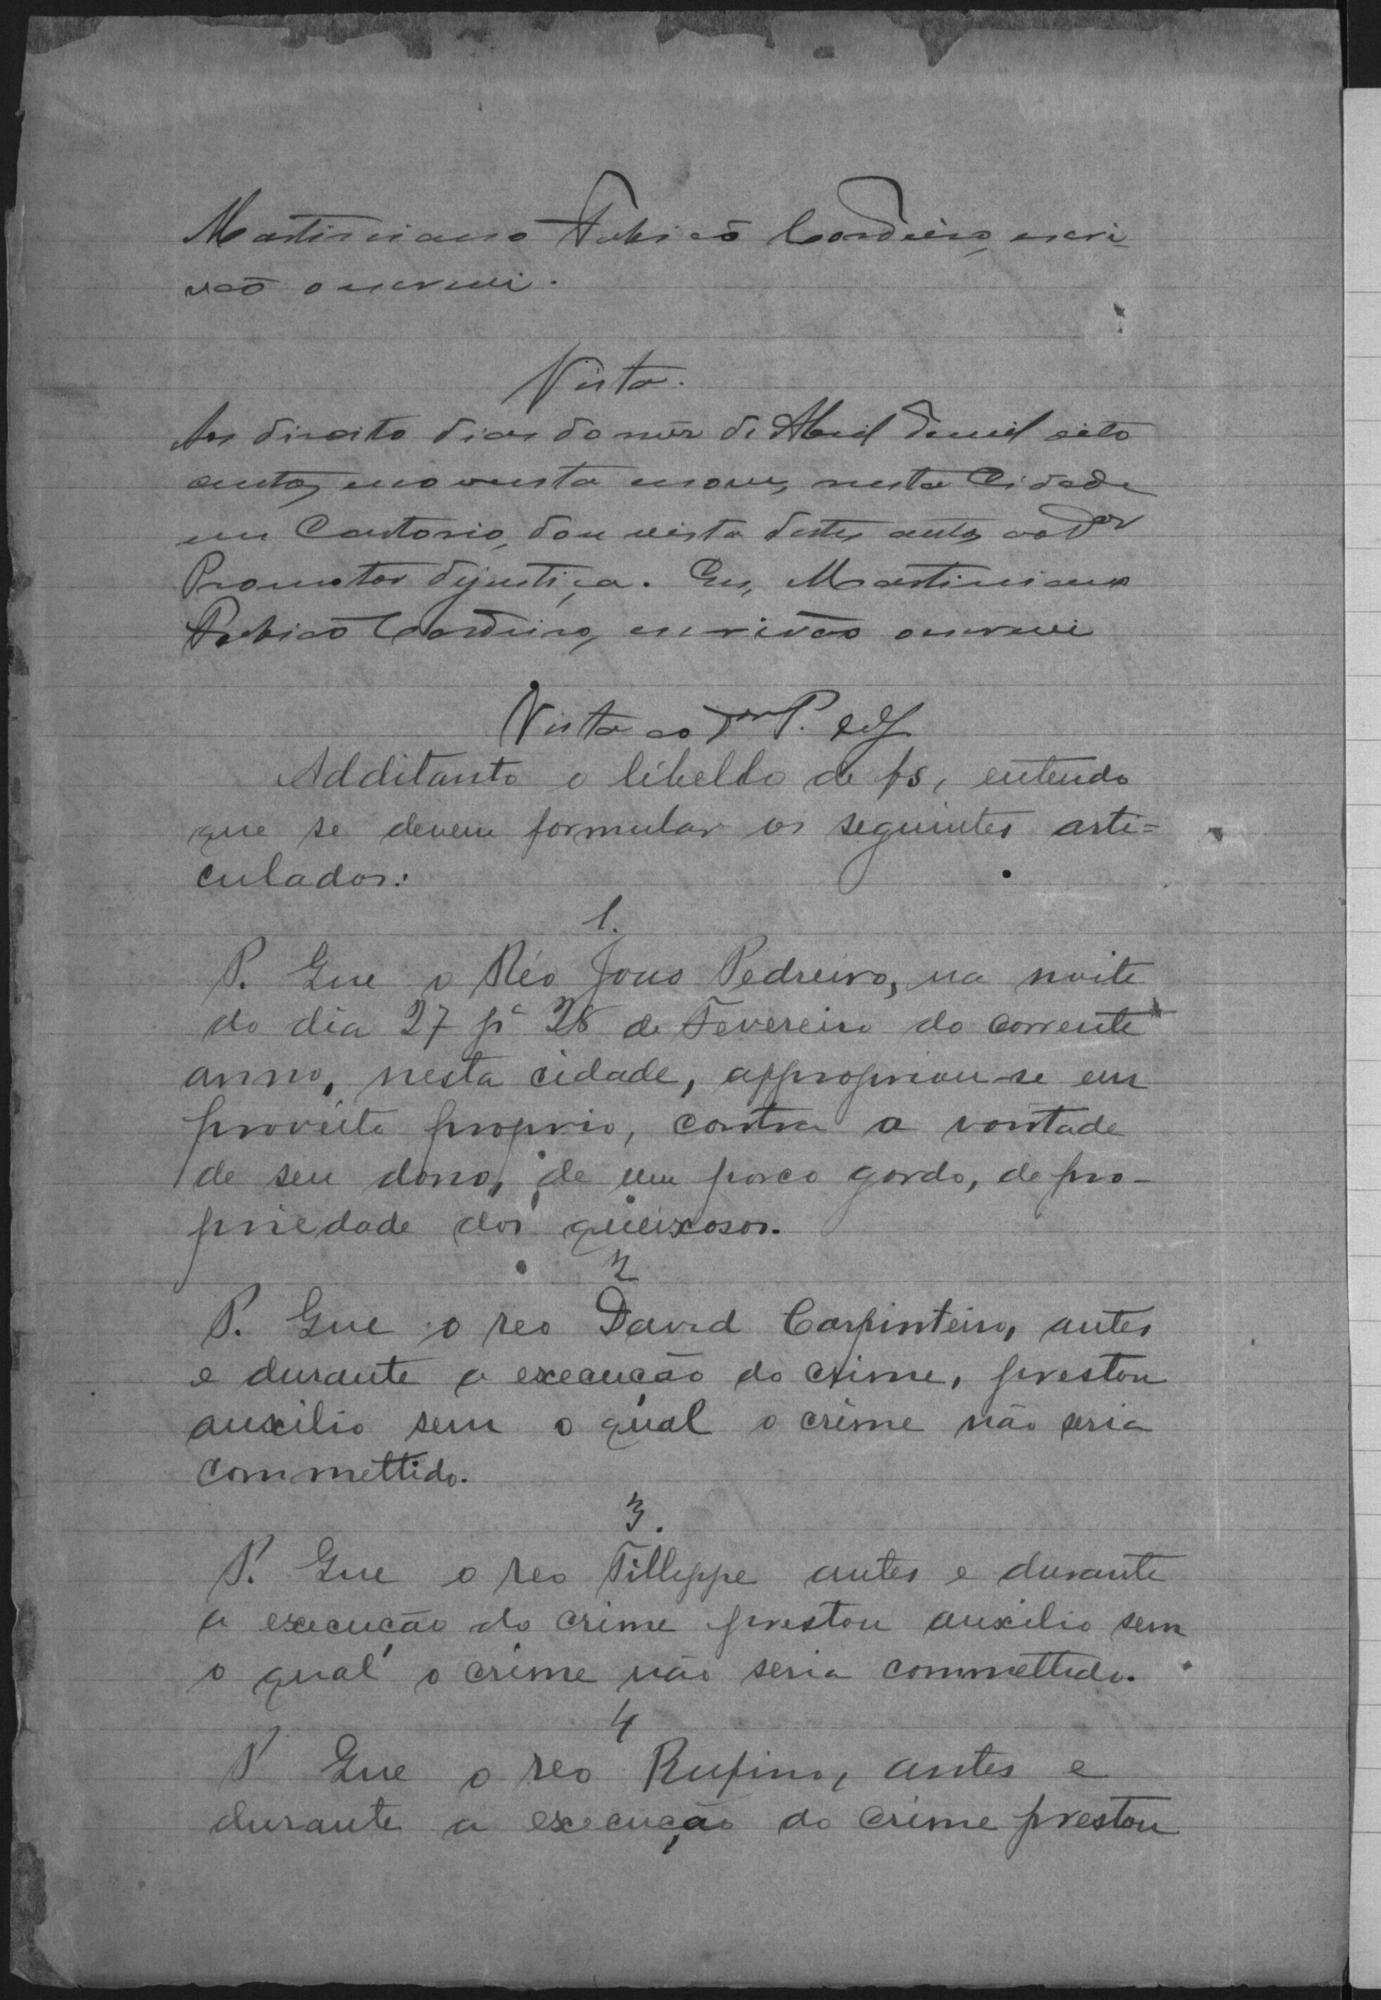 Martiniano Cordeiro, escri-
vão o escrevi.
Vista.
Aos dizoito dias do mês de Abril de mil oito
centos, noventa e nove, nesta Cidade
em Cartorio, dou vista destes autos ao Dor
Promotor de justiça. Eu, Martiniano
Cordeiro, escrivão o escrevi
Vista ao Dor P.
Additando o libello de fs, entendo
que se devem formular os seguintes arti=
culados:
1.
P. Que o Réo João Pedreiro, na noite
do dia 27 pª 28 de Fevereiro do corrente
anno, nesta cidade, appropriou-se em
proveito proprio, contra a vontade
de seu dono, de um porco gordo, de pro-
priedade dos queixosos.
2
P. Que o reo David Carpinteiro, antes
e durante a execução do crime, prestou
auxilio sem o qual o crime não seria
commettido.
3.
P. Que o reo Fillippe antes e durante
a execução do crime prestou auxilio sem
o qual o crime não seria commettido.
4
P Que o reo Rufino, antes e
durante a execução do crime prestou